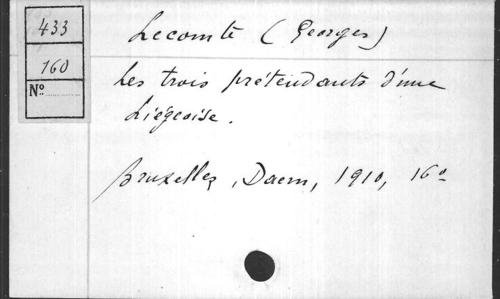 433
160
No
Lecomte (Georges)
Les trois prétendants d'une
Liégeoise.
Bruxelles, Daem, 1910, 16o